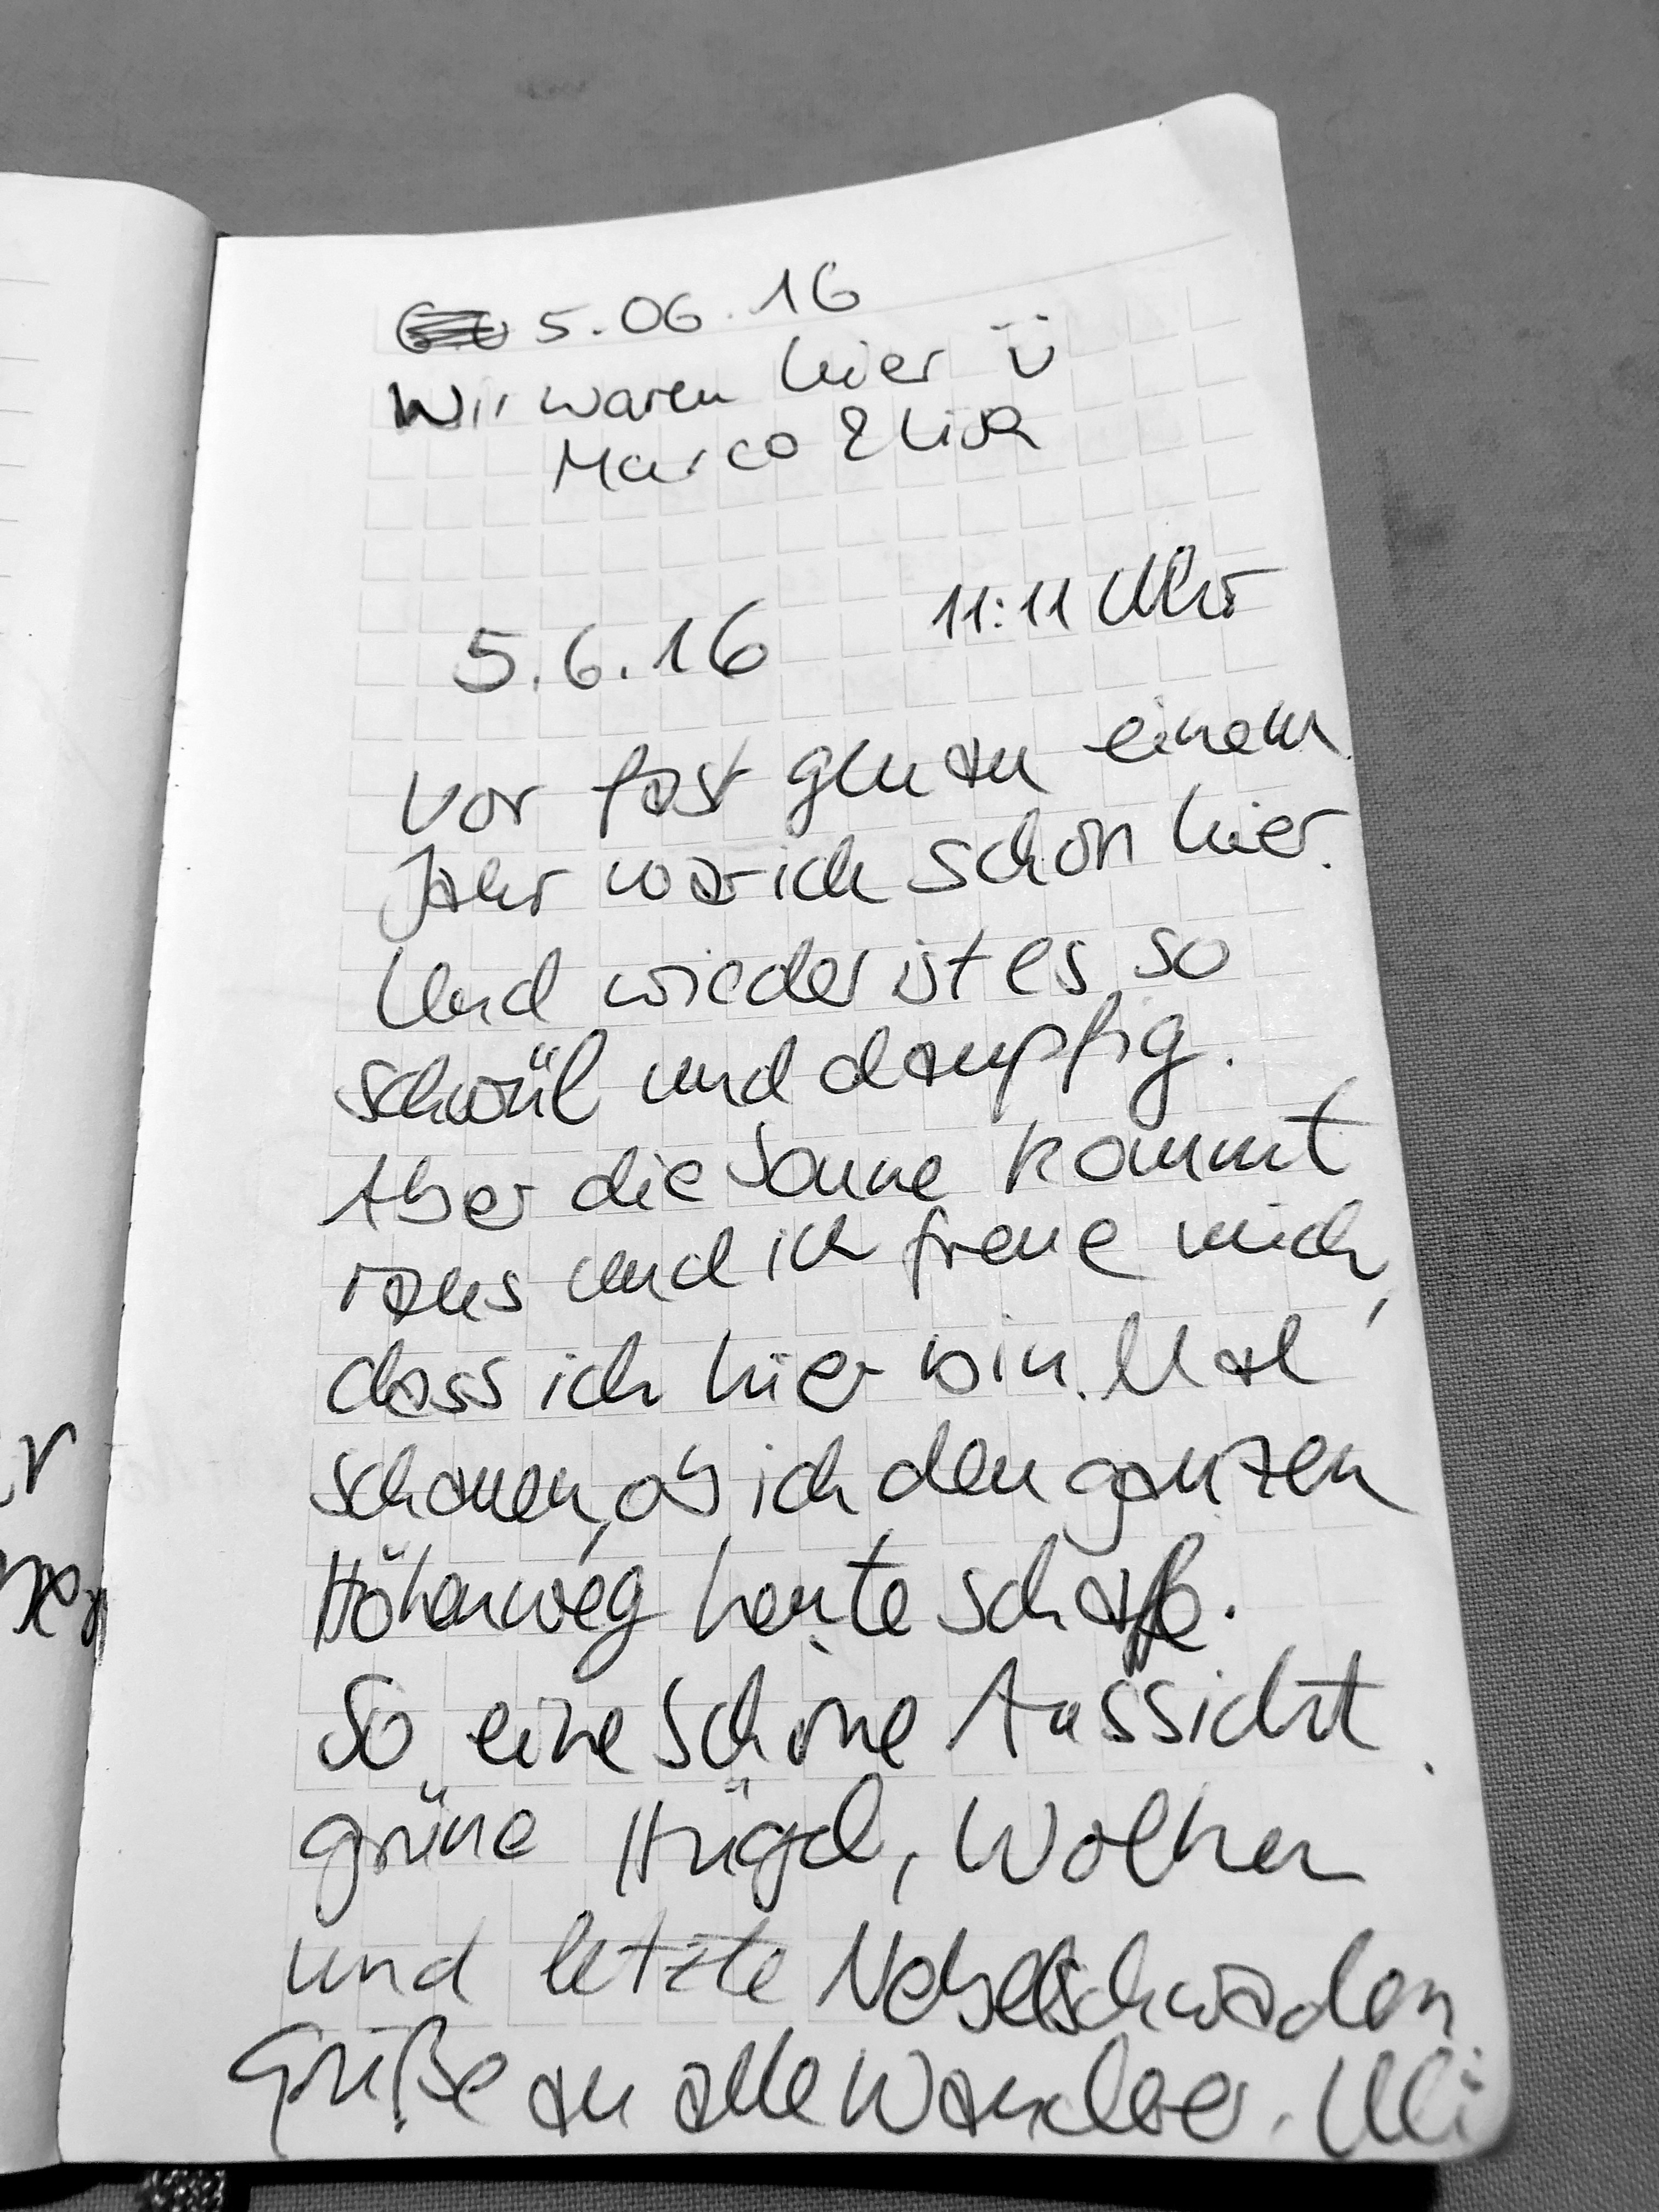 5.06.16
Wir waren hier ü
Marco & Lisa
5.6.16 11:11 Uhr
Vor fast genau einem
Jahr war ich schon hier.
Und wieder ist es so
schwül und dampfig.
Aber die Sonne kommt
raus und ich freue mich,
dass ich hier bin. Mal
schauen, ob ich den ganzen
Höhenweg heute schaffe.
So eine schöne Aussicht.
grüne Hügel, Wolken
und letzte Nebelschwaden.
Grüße an alle Wanderer. Uli